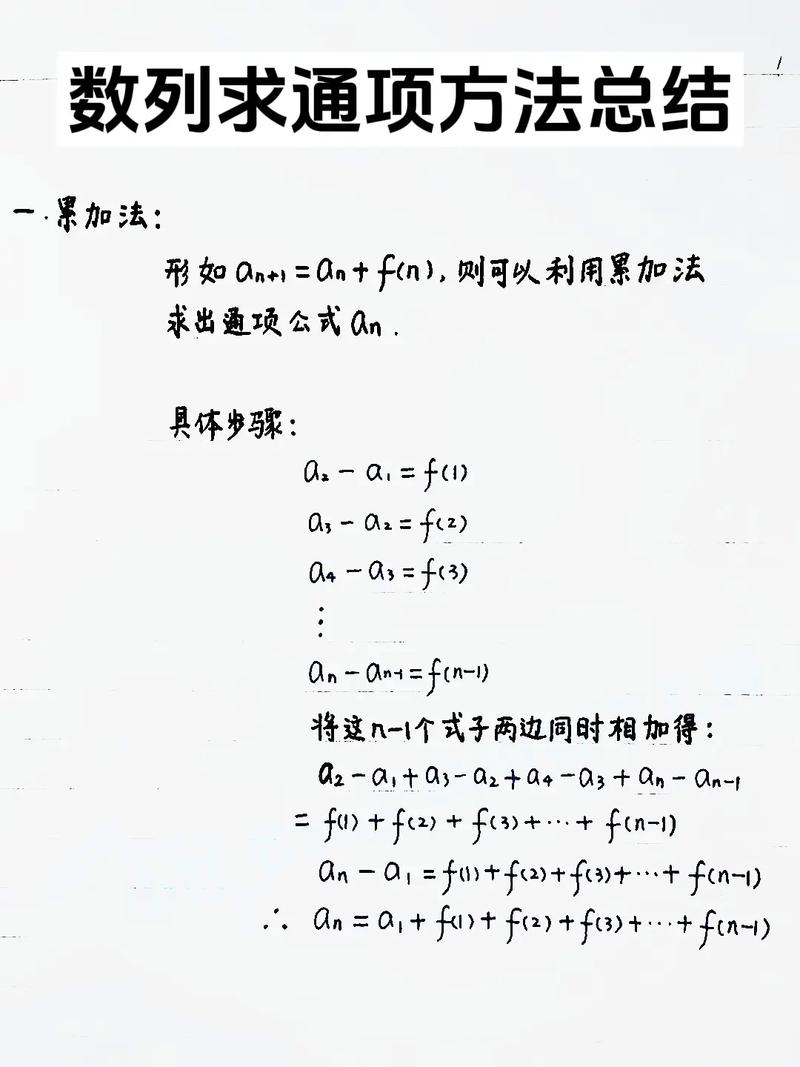 数列求通项方法总结
一.累加法:
形如 aₙ₊₁=aₙ+f(n),则可以利用累加法
求出通项公式 aₙ.
具体步骤:
a₂-a₁=f(1)
a₃-a₂=f(2)
a₄-a₃=f(3)
⋮
aₙ-aₙ₋₁=f(n-1)
将这n-1个式子两边同时相加得:
a₂-a₁+a₃-a₂+a₄-a₃+aₙ-aₙ₋₁
=f(1)+f(2)+f(3)+⋯+f(n-1)
aₙ-a₁=f(1)+f(2)+f(3)+⋯+f(n-1)
∴ aₙ=a₁+f(1)+f(2)+f(3)+⋯+f(n-1)